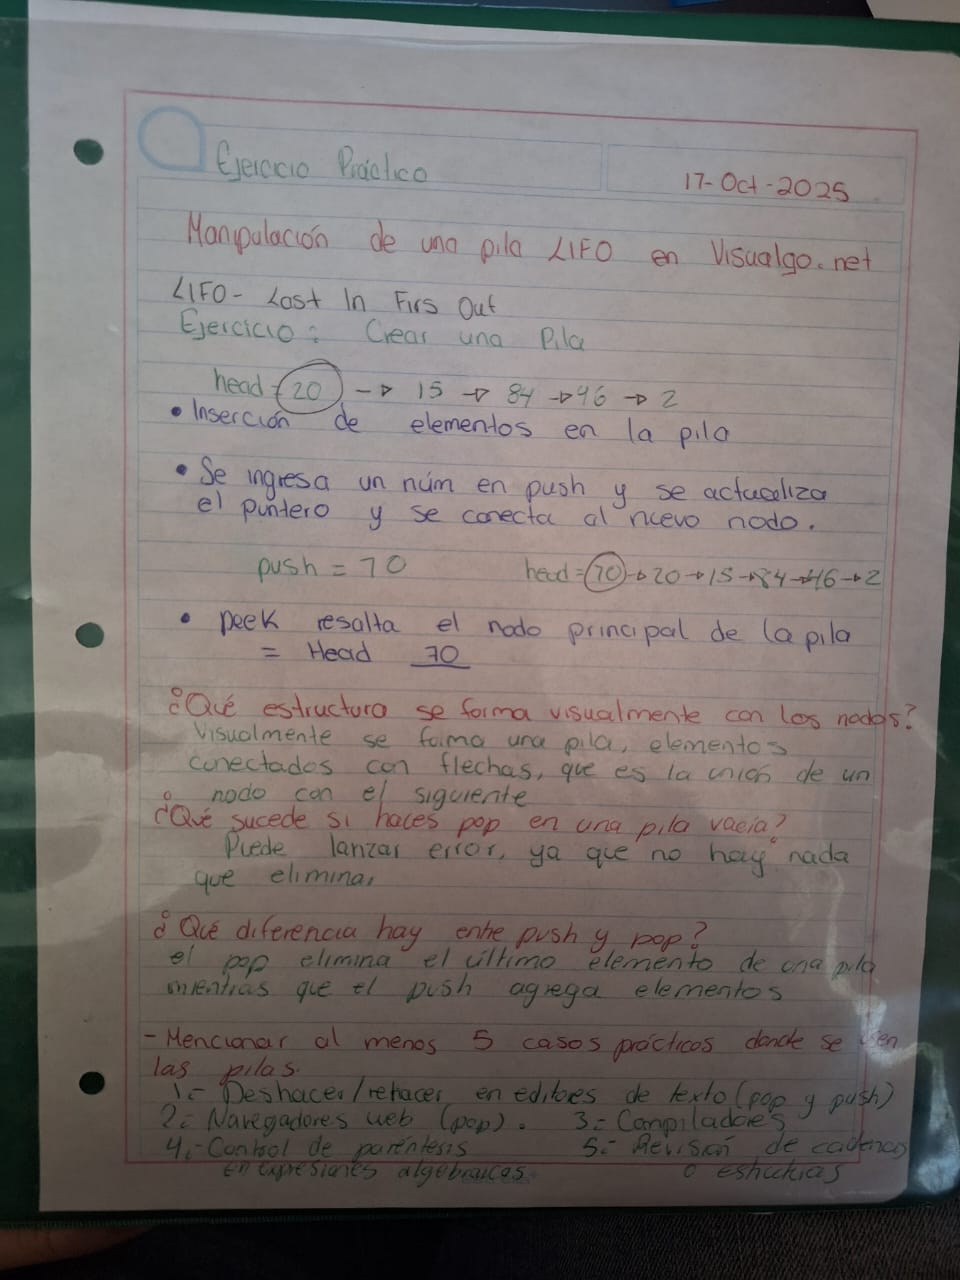 Ejercicio Práctico
17-Oct-2025
Manipulación de una pila LIFO en Visualgo.net
LIFO- Last In Firs Out
Ejercicio: Crear una Pila
head = 20 → 15 → 84 → 46 → 2
• Inserción de elementos en la pila
• Se ingresa un núm en push y se actualiza
el puntero y se conecta al nuevo nodo.
push = 70 head = 70 → 20 → 15 → 84 → 46 → 2
• peek resalta el nodo principal de la pila
= Head 70
¿Qué estructura se forma visualmente con los nodos?
Visualmente se forma una pila, elementos
conectados con flechas, que es la unión de un
nodo con el siguiente
¿Qué sucede si haces pop en una pila vacía?
Puede lanzar error, ya que no hay nada
que eliminar
¿Qué diferencia hay entre push y pop?
el pop elimina el último elemento de una pila
mientras que el push agrega elementos
- Mencionar al menos 5 casos prácticos donde se usen
las pilas.
1.- Deshacer/rehacer en editores de texto (pop y push)
2.- Navegadores web (pop). 3.- Compiladores
4.- Control de paréntesis 5.- Revisión de cadenas
en expresiones algebraicas o